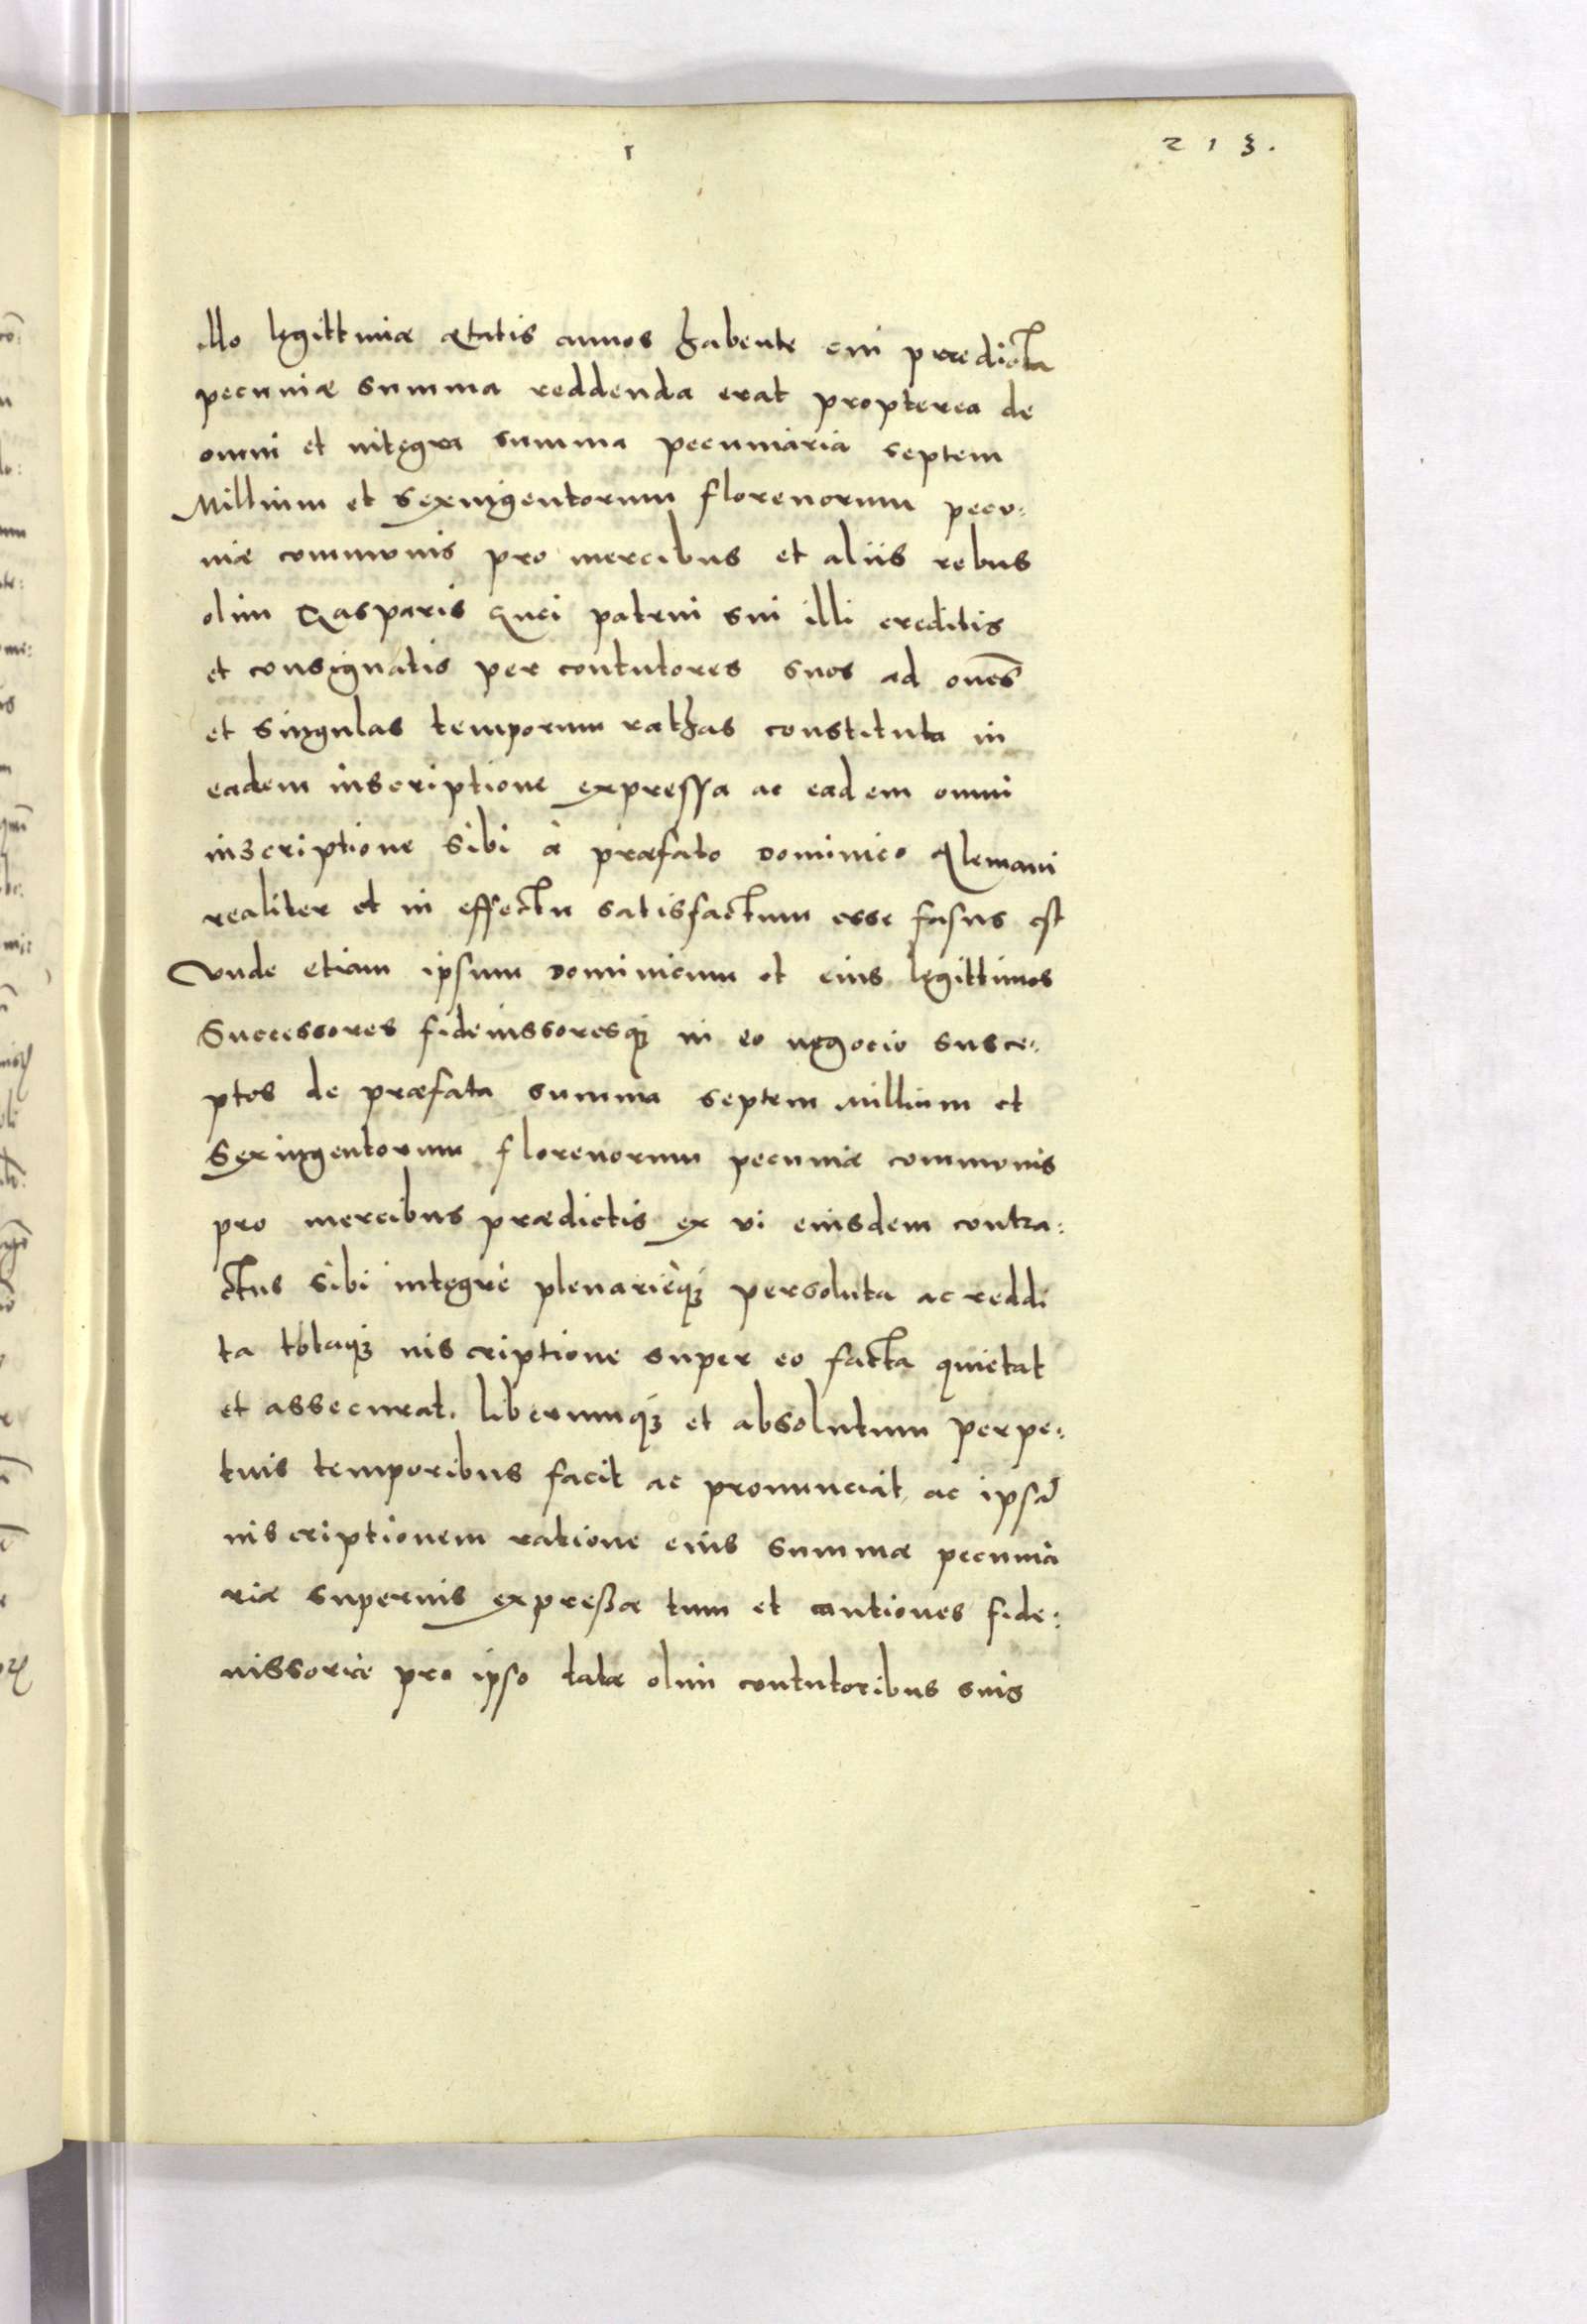 213.
illo legittimæ ætatis annos habente cui prædicta
pecuniæ summa reddenda erat propterea de
omni et integra summa pecuniaria septem
Millium et sexingentorum florenorum pecu:
niæ communis pro mercibus et aliis rebus
olim Gasparis Guci patrui sui illi creditis
et consignatis per contutores suos ad oñes
et singulas temporum rathas constituta in
eadem inscriptione expressa ac eadem omni
inscriptione sibi à præfato Dominico Alemani
realiter et in effectu satisfactum esse fasus est
Vnde etiam ipsum Dominicum et eius legittimos
Successores fideiussoresq; in eo negocio susce:
ptos de præfata summa septem Millium et
Sexingentorum florenorum pecuniæ communis
pro mercibus prædictis ex vi eiusdem contra:
ctus sibi integrè plenarièq; persoluta ac reddi
ta totaq; inscriptione super eo facta quietat
et assecurat. liberumq; et absolutum perpe:
tuis temporibus facit ac pronunciat ac ipsã
inscriptionem ratione eius summæ pecunia
riæ superius expressæ tum et cautiones fide:
iussoriæ pro ipso datæ olim contutoribus suis